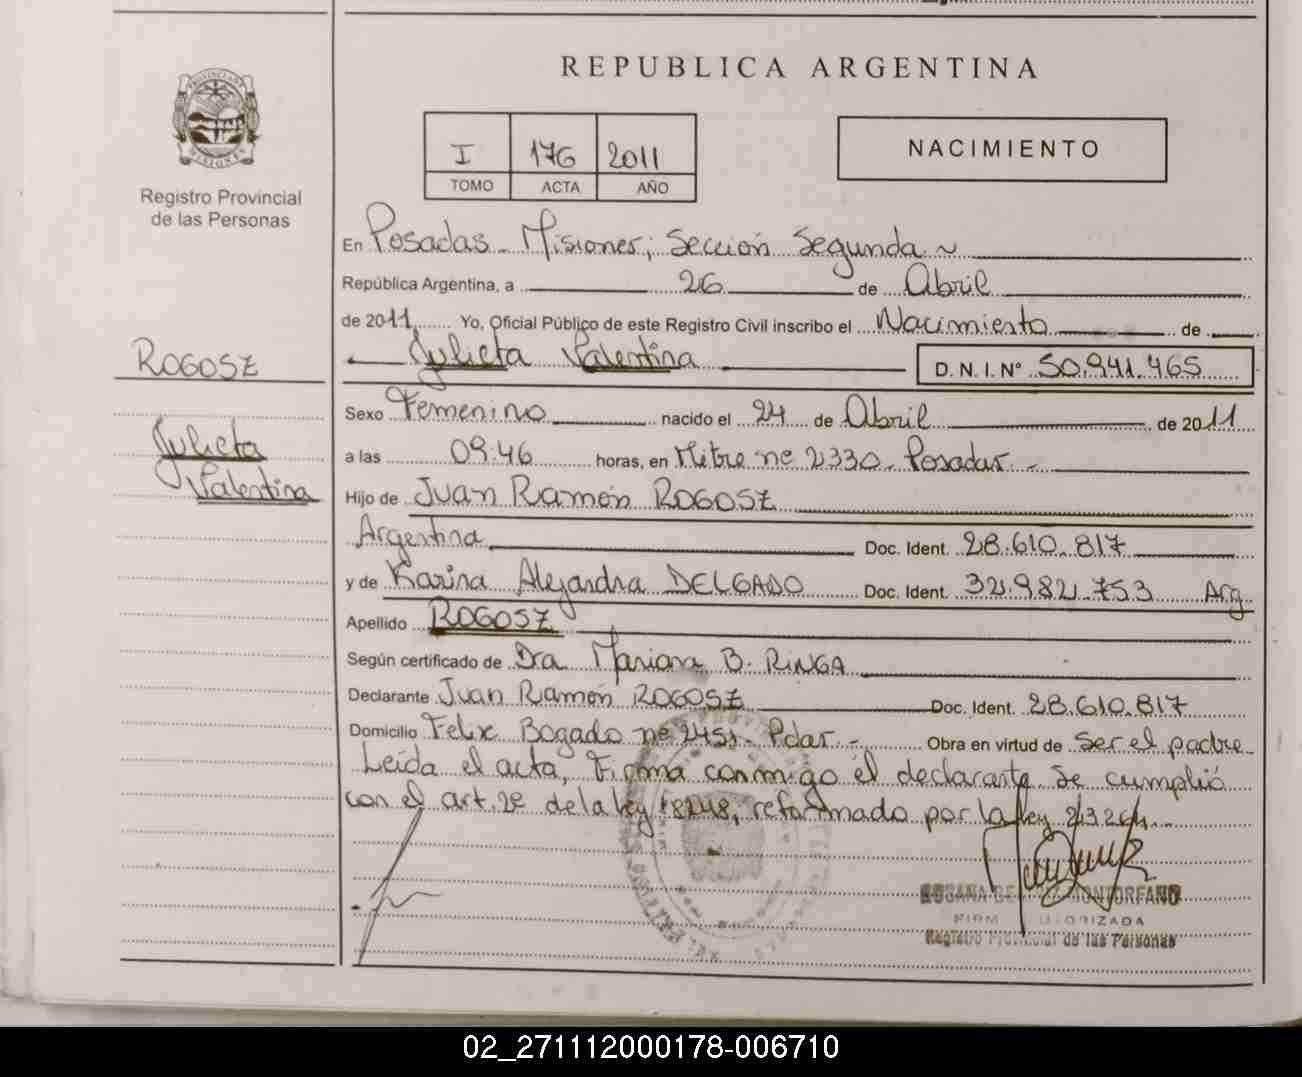 REPUBLICA ARGENTINA
PROVINCIA DE MISIONES
Registro Provincial
de las Personas
I 176 2011
TOMO ACTA AÑO
NACIMIENTO
En Posadas - Misiones; Sección Segunda ~
República Argentina, a 26 de Abril
de 2011 Yo, Oficial Público de este Registro Civil inscribo el Nacimiento de
Julieta Valentina D. N. I. Nº 50.941.465
ROGOSZ
Julieta
Valentina
Sexo Femenino nacido el 24 de Abril de 2011
a las 09:46 horas, en Mitre nº 2330 - Posadas -
Hijo de Juan Ramón ROGOSZ
Argentina Doc. Ident. 28.610.817
y de Karina Alejandra DELGADO Doc. Ident. 32.982.753 Arg
Apellido ROGOSZ
Según certificado de Dra Mariana B. RINGA
Declarante Juan Ramón ROGOSZ Doc. Ident. 28.610.817
Domicilio Felix Bogado nº 2451 - Pdas - Obra en virtud de Ser el padre
Leída el acta, Firma conmigo el declarante Se cumplió
con el art. 2º de la ley 18248, reformado por la ley 23264.-
MONTORFANO
Registro Provincial de las Personas
02_271112000178-006710